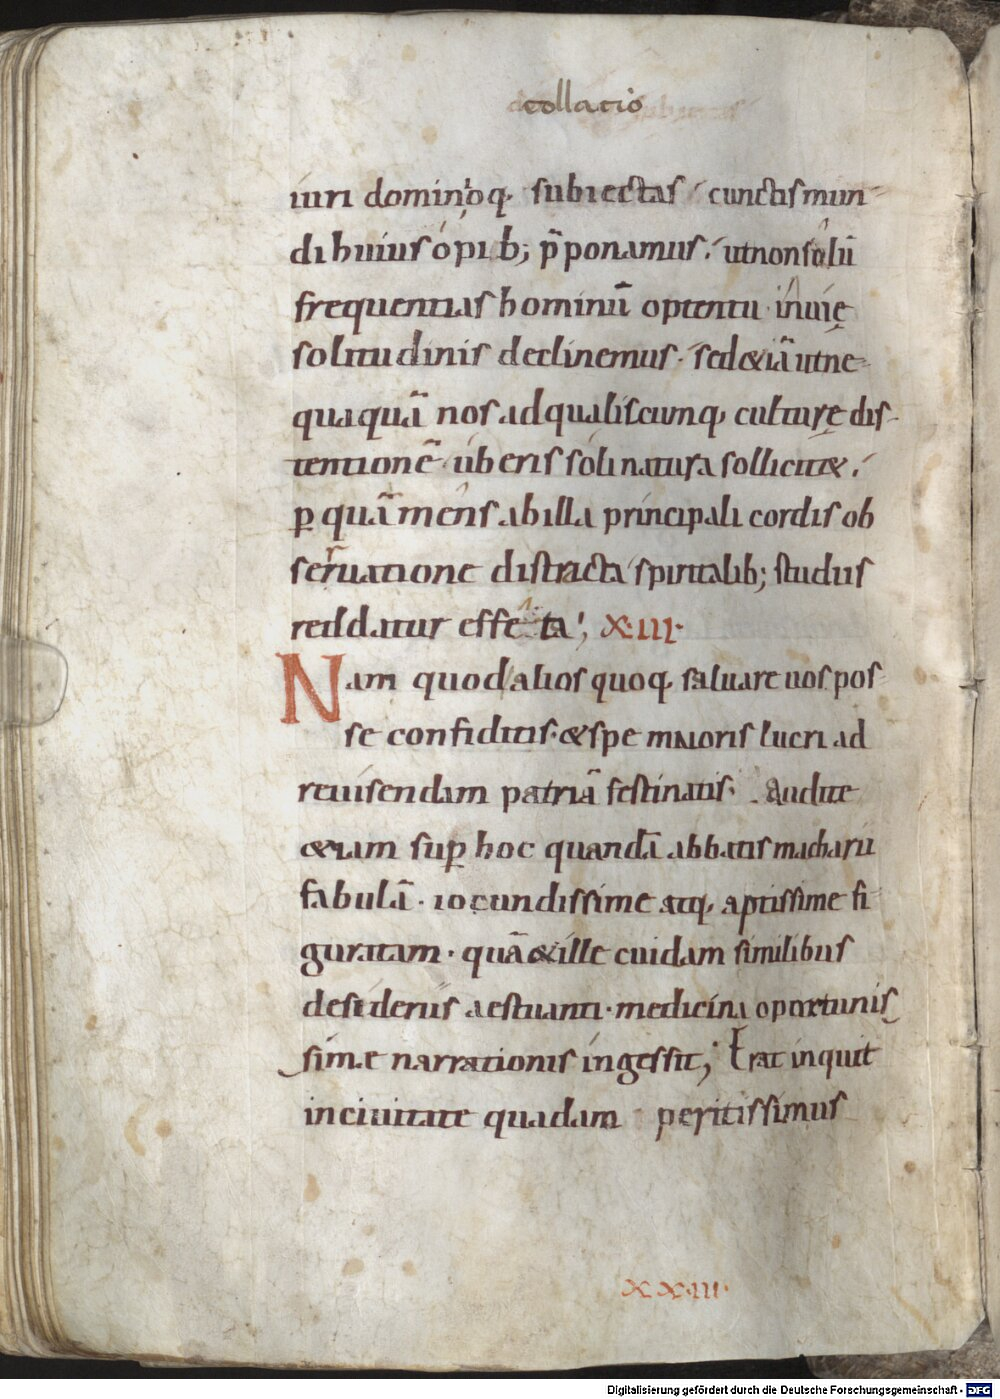 collatio
iuri dominioq; subiectas cunctis mun-
di huius opib; p̄ponamus. ut non solū
frequentias hominū optentu inuię
solitudinis declinemus. sed &iā ut ne-
quaquā nos ad qualiscumq; culturę dis-
tentionē uberis soli natura sollicit&.
ꝑ quā mens ab illa principali cordis ob
seruatione districta spiritalib; studiis
reddatur effeta; X·III·
Nam quod alios quoq; saluare uos pos
se confiditis. & spe maioris lucri ad
reuisendam patriā festinatis. Audite
&iam suꝑ hoc quandā abbatis macharii
fabulā. iocundissime atq; aptissime fi
guratam. quā & ille cuidam similibus
desideriis aestuanti. medicina oportunis
simae narrationis ingessit; Erat inquit
in ciuitate quadam peritissimus
XX·III·
Digitalisierung gefördert durch die Deutsche Forschungsgemeinschaft - DFG